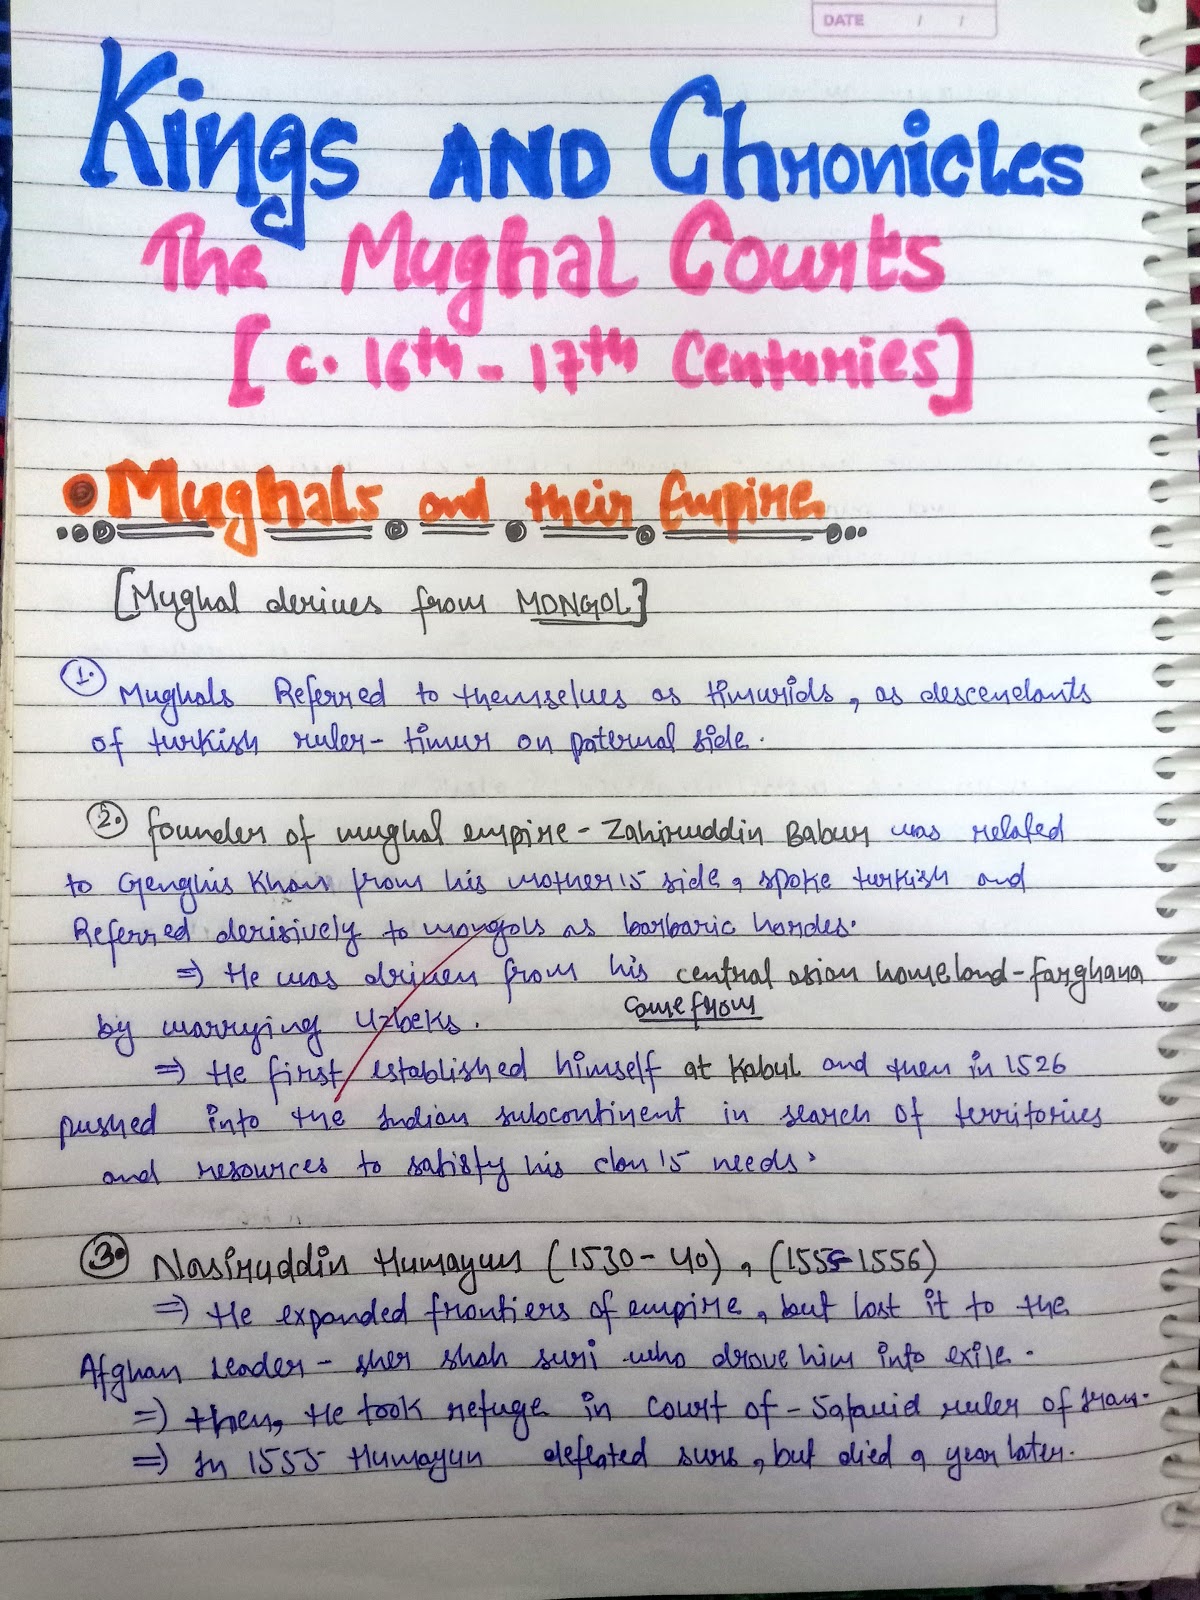 DATE / /
Kings AND Chronicles
The Mughal Courts
[c. 16th - 17th Centuries]
Mughals and their Empire
[Mughal derives from MONGOL]
1. Mughals Referred to themselves as timurids, as descendants
of turkish ruler - timur on paternal side.
2. founder of mughal empire - Zahiruddin Babur was related
to Genghis Khan from his mother's side, spoke turkish and
Referred derisively to mongols as barbaric hordes.
⇒ He was driven from his central asian homeland - farghana
came from
by warrying Uzbeks.
⇒ He first established himself at Kabul and then in 1526
pushed into the Indian subcontinent in search of territories
and resources to satisfy his clan's needs.
3. Nasiruddin Humayun (1530-40), (1555-1556)
⇒ He expanded frontiers of empire, but lost it to the
Afghan leader - sher shah suri who drove him into exile.
⇒ then, He took refuge in court of - Safavid ruler of Iran.
⇒ In 1555 Humayun defeated surs, but died a year later.